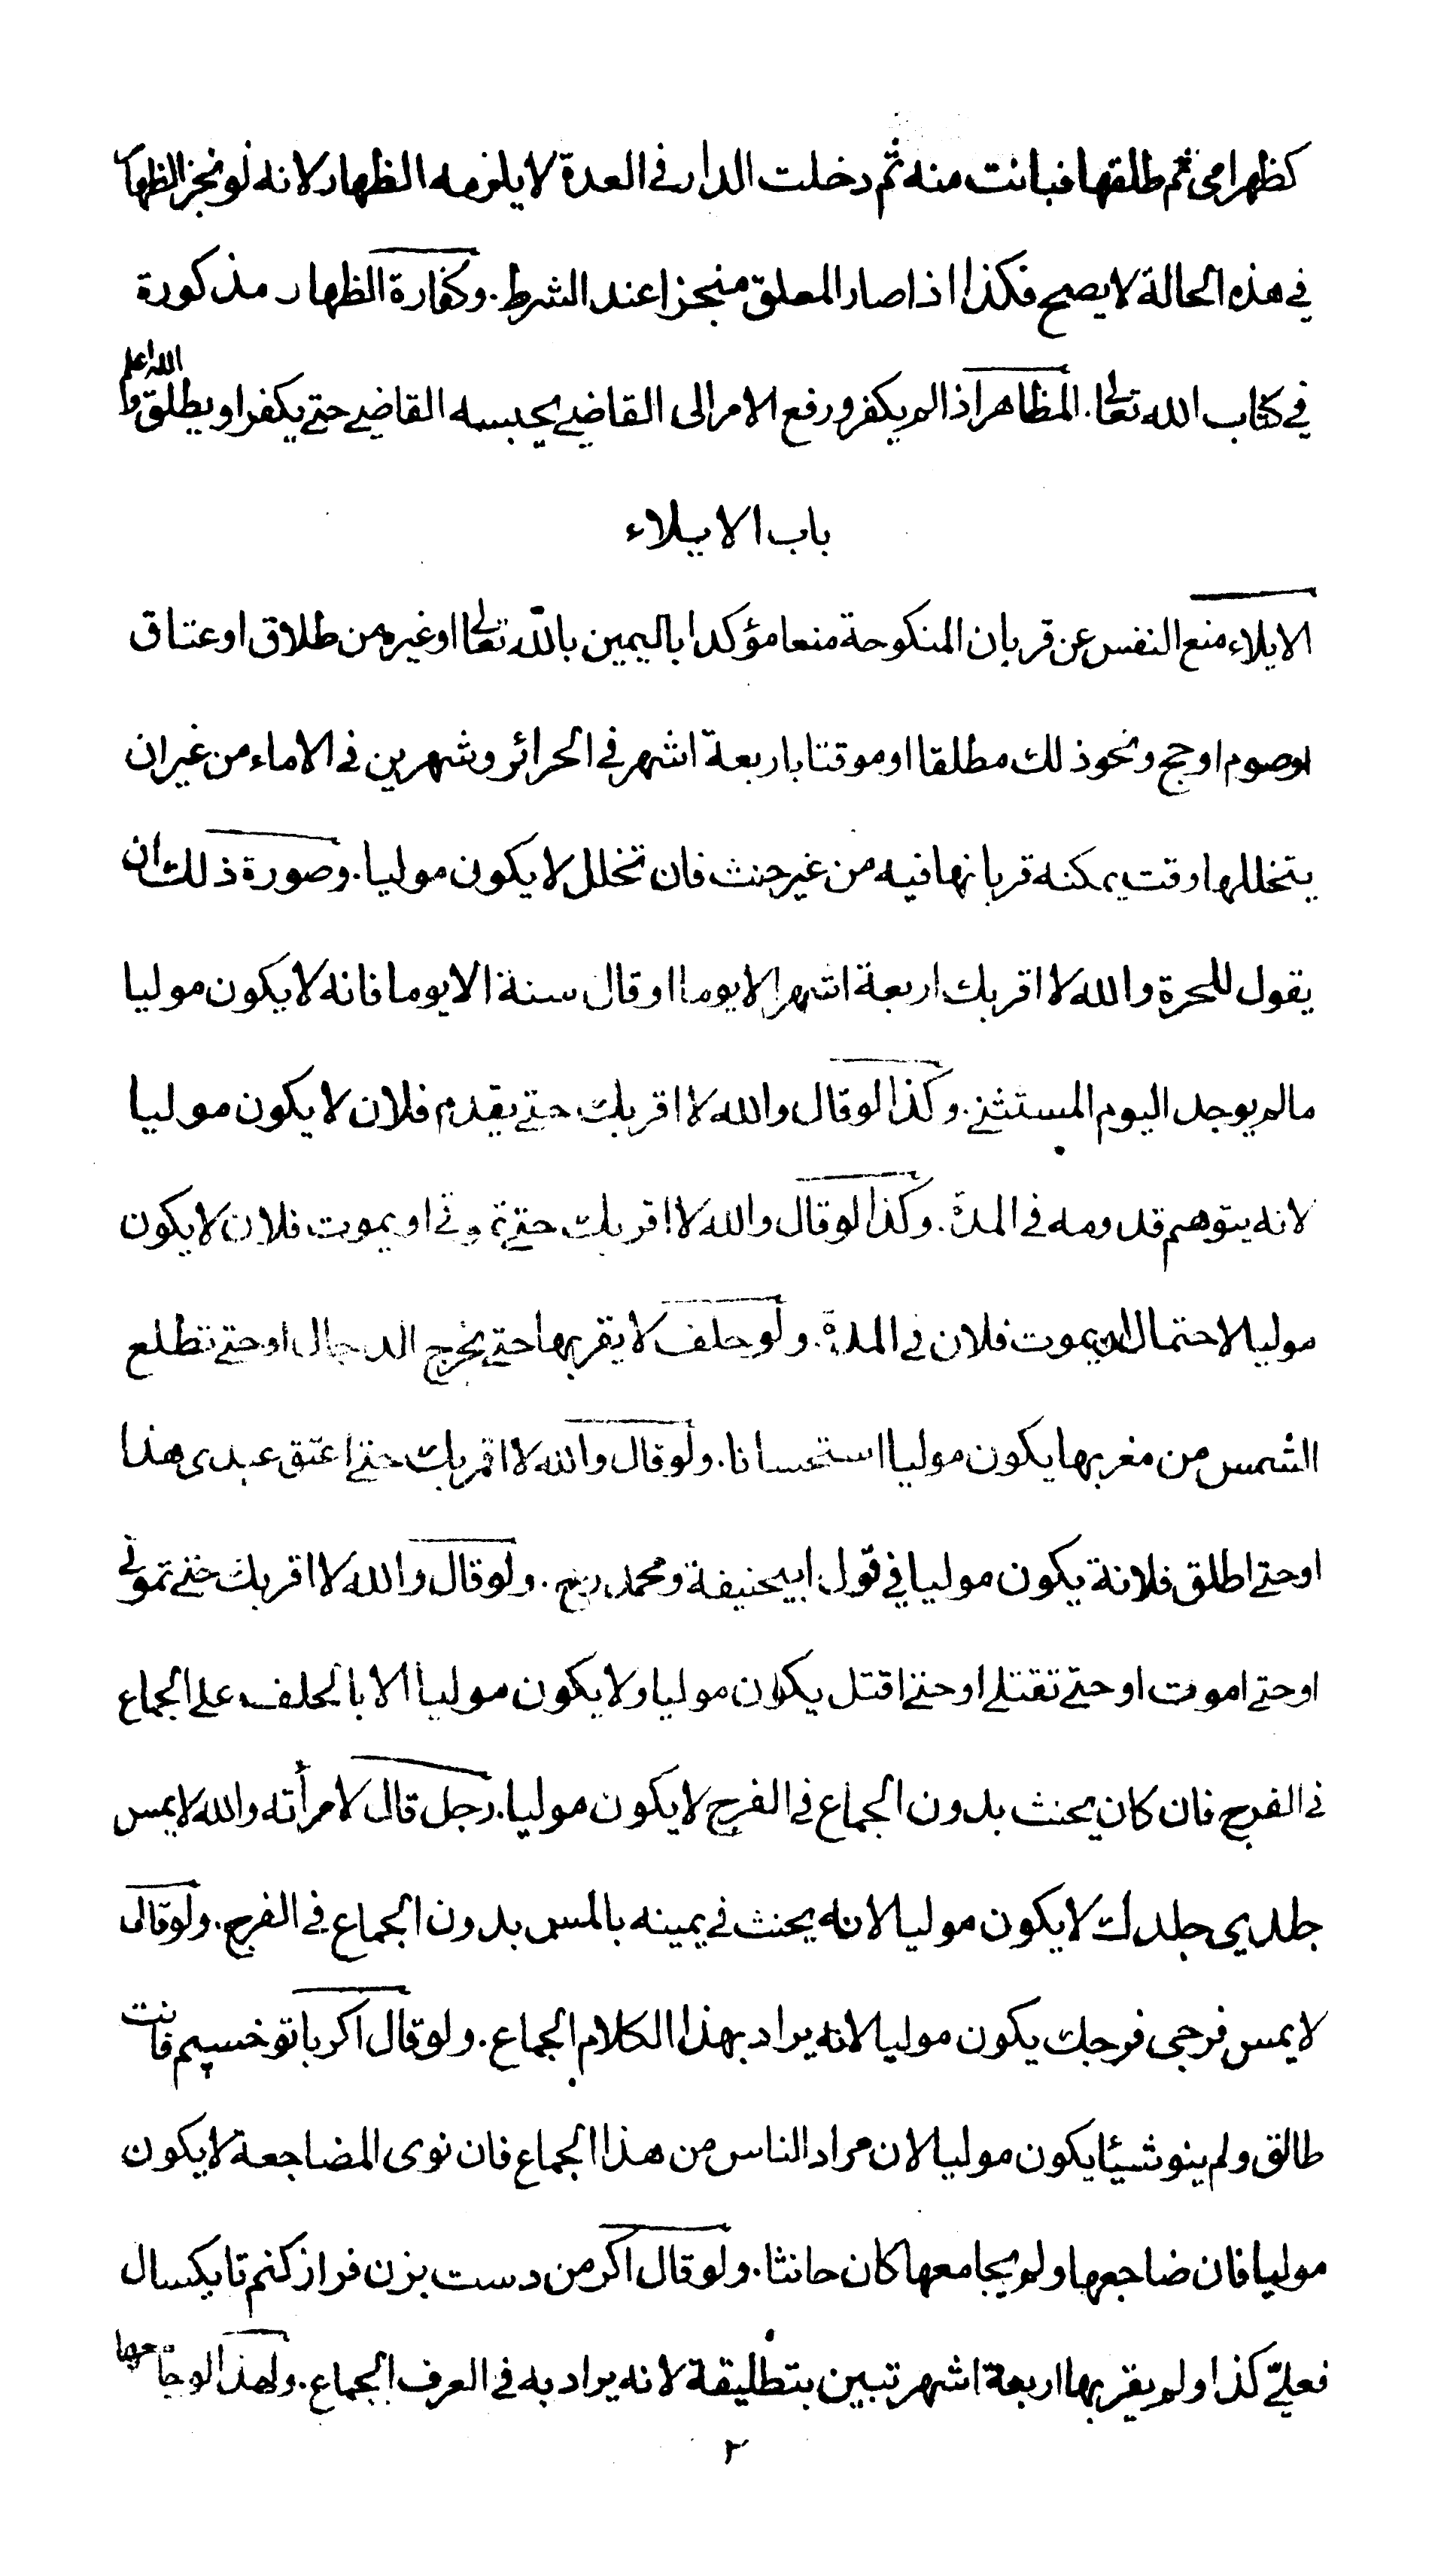 كظهر امى ثم طلقها فبانت منه ثم دخلت الدار فى العدة لا يلزمه الظهار لانه لو نجز الظهار
في هذه الحالة لا يصح فكذا اذا صار المعلق منجزا عند الشرط. وكفارة الظهار مذكورة
في كتاب الله تعالى. المظاهر اذا لم يكفر ورفع الامر الى القاضي يحبسه القاضي حتى يكفر او يطلق والله اعلم
باب الايلاء
الايلاء منع النفس عن قربان المنكوحة منعا مؤكدا باليمين بالله تعالى او غيره من طلاق او عتاق
اوصوم او حج ونحو ذلك مطلقا او موقتا باربعة اشهر في الحرائر وشهرين في الاماء من غير ان
يتخللها وقت يمكنه قربانها فيه من غير حنث فان تخلل لا يكون موليا. وصورة ذلك ان
يقول للحرة والله لا اقربك اربعة اشهر الا يوما او قال سنة الا يوما فانه لا يكون موليا
مالم يوجد اليوم المستثنى. وكذا لو قال والله لا اقربك حتى يقدم فلان لا يكون موليا
لانه يتوهم قدومه فى المدة. وكذا لو قال والله لا اقربك حتى تموتى او يموت فلان لا يكون
موليا لاحتمال ان يموت فلان في المدة. ولو حلف لا يقربها حتى يخرج الدجال او حتى تطلع
الشمس من مغربها يكون موليا استحسانا. ولو قال والله لا اقربك حتى اعتق عبدى هذا
او حتى اطلق فلانة يكون موليا في قول ابيحنيفة ومحمد رح. ولو قال والله لا اقربك حتى تموتى
او حتى اموت او حتى تقتلى او حتى اقتل يكون موليا ولا يكون موليا الا بالحلف على الجماع
فى الفرج فان كان يحنث بدون الجماع فى الفرج لا يكون موليا. رجل قال لامرأته والله لا يمس
جلدي جلدك لا يكون موليا لانه يحنث في يمينه بالمس بدون الجماع في الفرج. ولو قال
لا يمس فرجى فرجك يكون موليا لانه يراد بهذا الكلام الجماع. ولو قال اكر با تو خسپم فانت
طالق ولم ينو شيئا يكون موليا لان مراد الناس من هذا الجماع فان نوى المضاجعة لا يكون
موليا فان ضاجعها ولم يجامعها كان حانثا. ولو قال اكر من دست بزن فراز كنم تا يكسال
فعليّ كذا ولم يقربها اربعة اشهر تبين بتطليقة لانه يراد به في العرف الجماع. ولهذا لو جامعها
٢